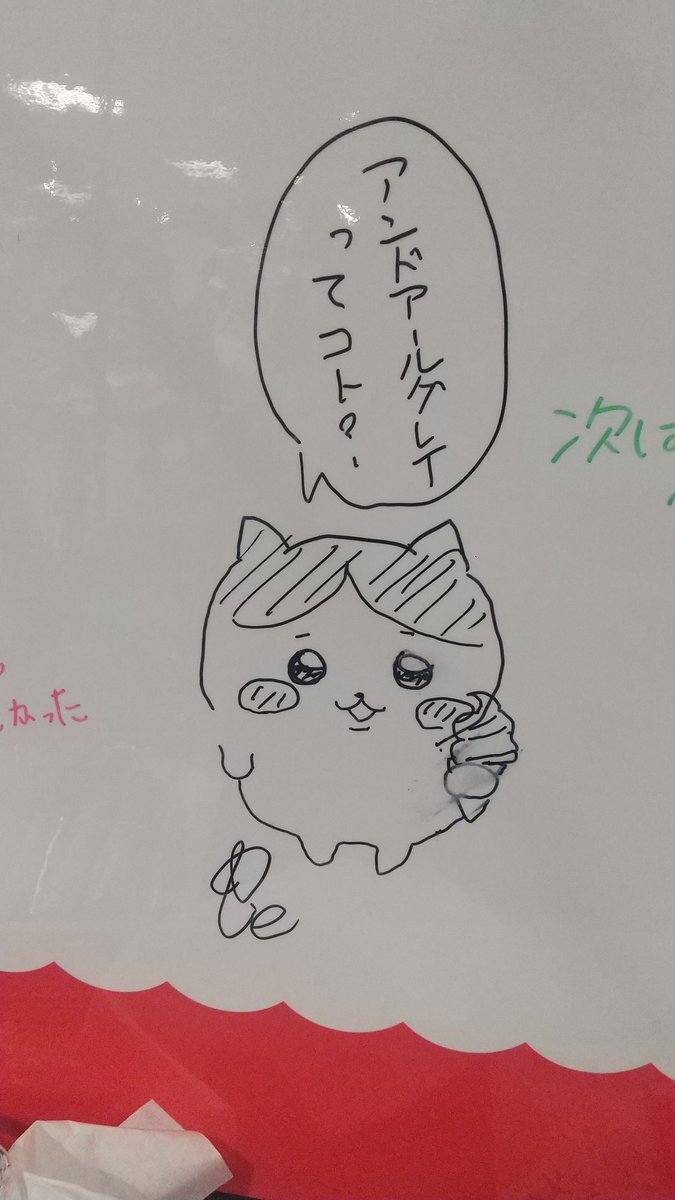 アンドアールグレイ
ってコト？
次は
かった